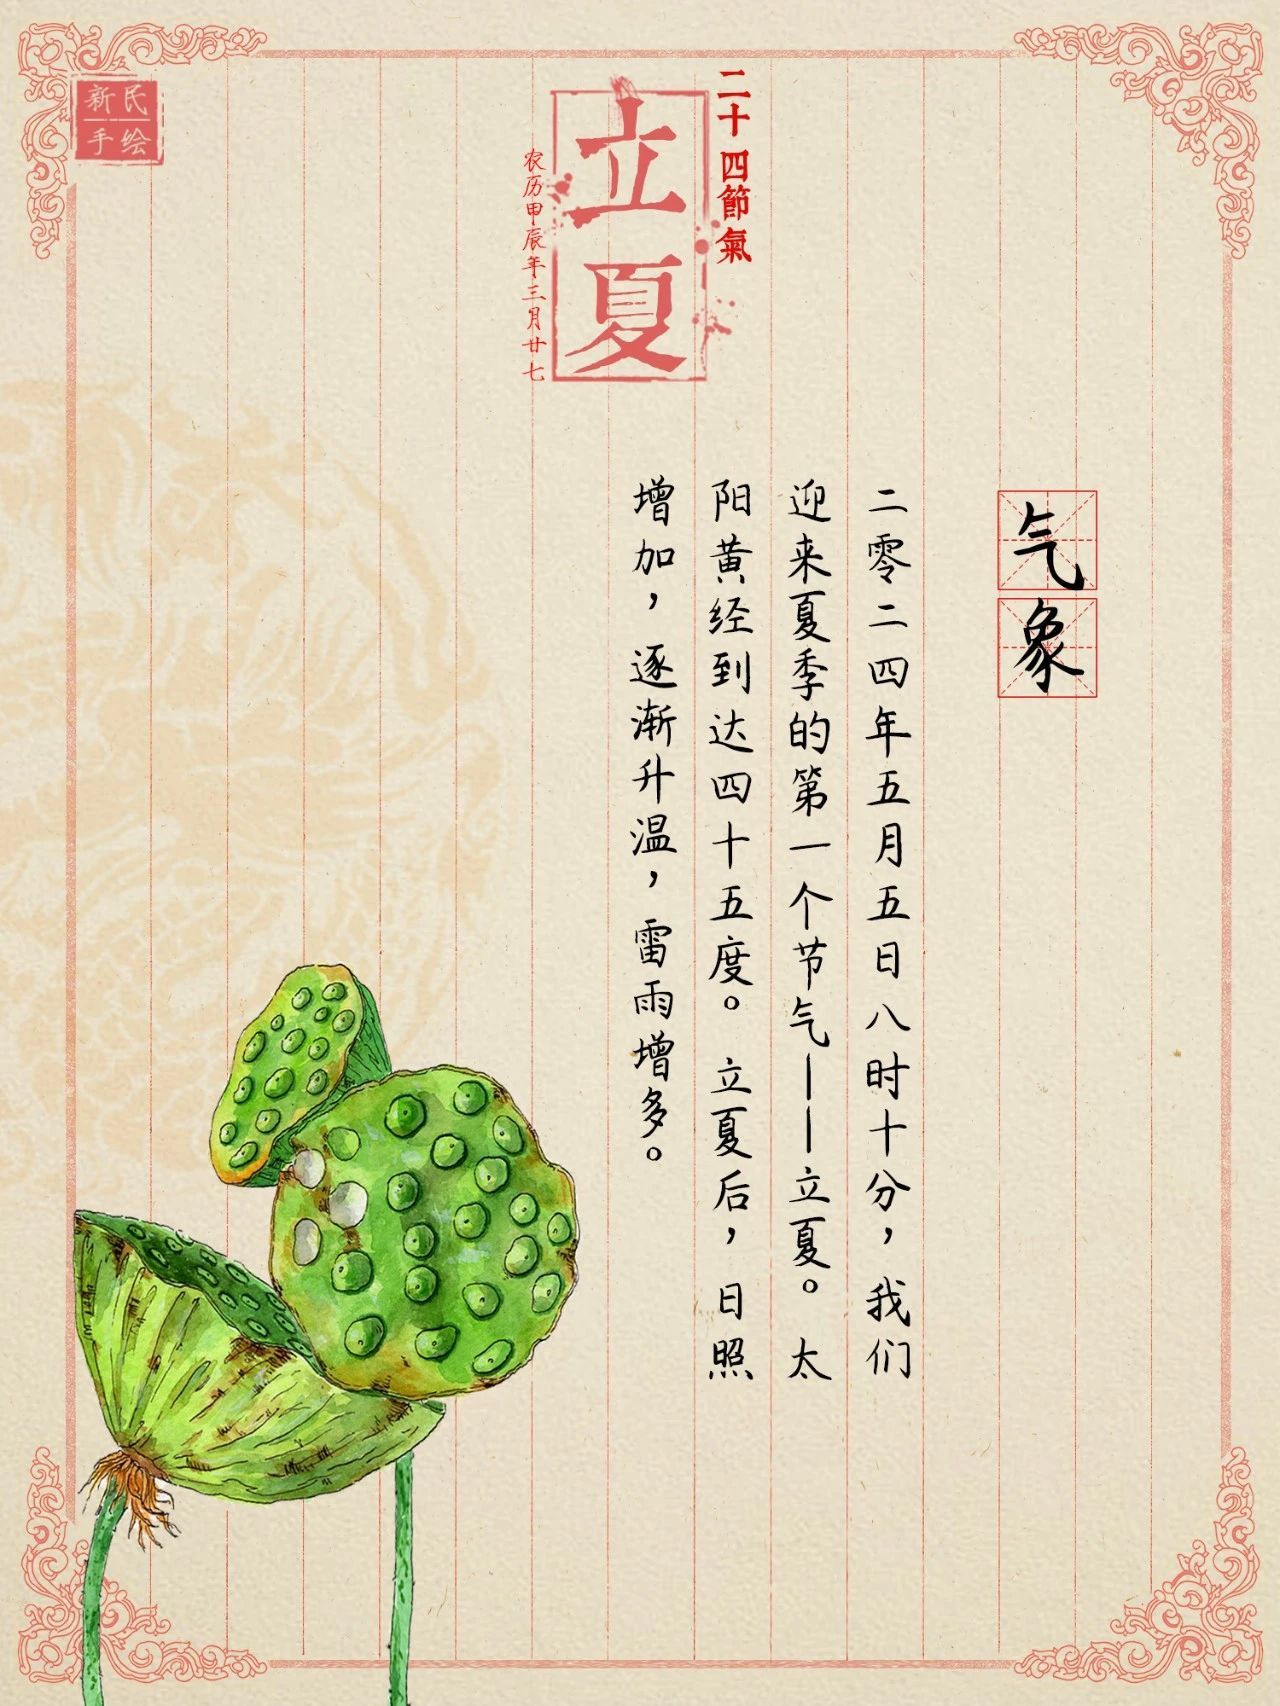 新民
手绘
二十四節氣
立夏
农历甲辰年三月廿七
气象
二零二四年五月五日八时十分，我们
迎来夏季的第一个节气——立夏。太
阳黄经到达四十五度。立夏后，日照
增加，逐渐升温，雷雨增多。